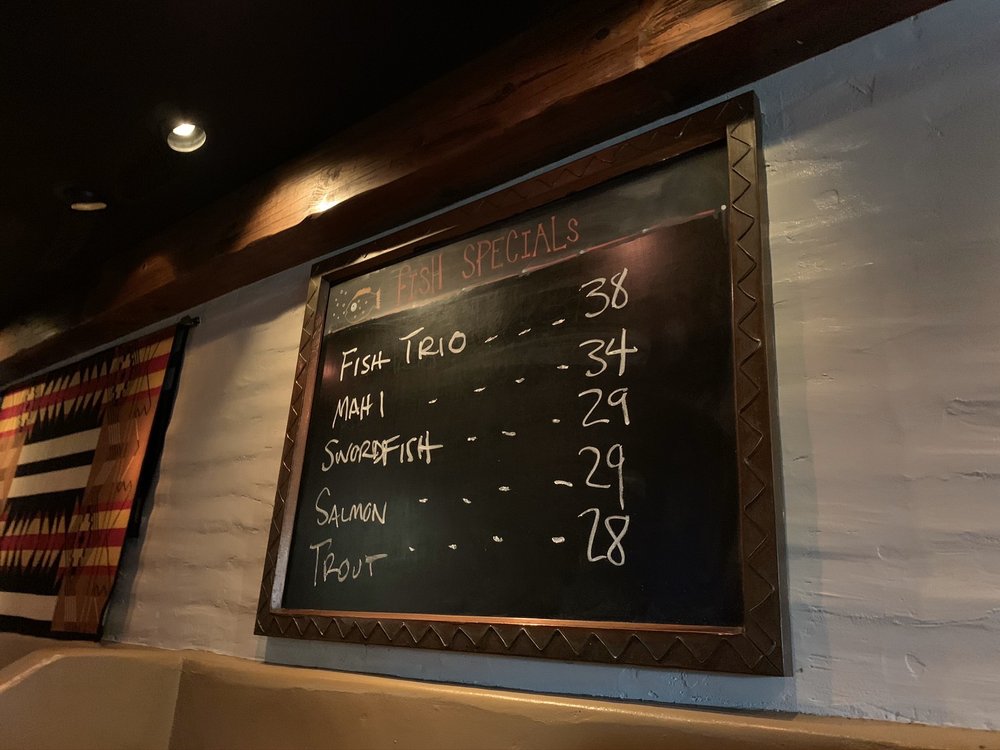 FISH SPECIALS
FISH TRIO - - - - 38
MAHI - - - - 34
SWORDFISH - - - 29
SALMON - - - - 29
TROUT - - - - 28